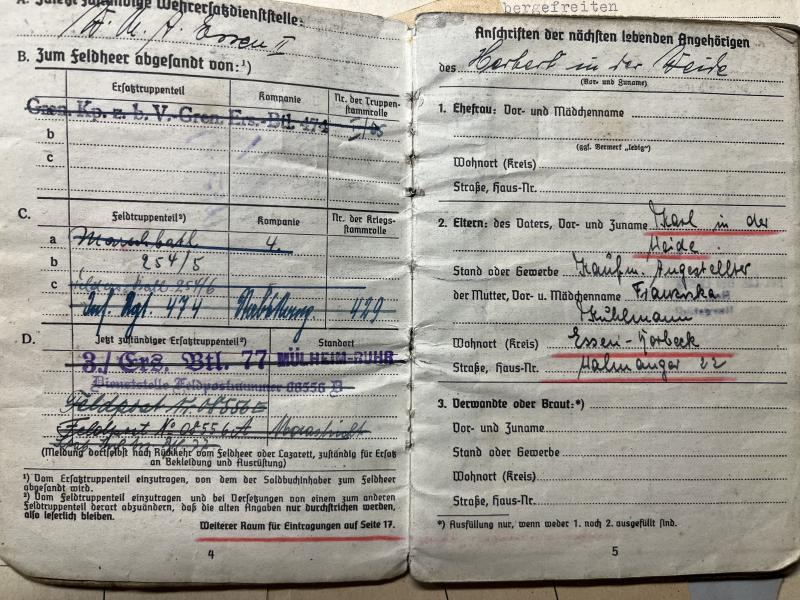 bergefreiten
A. Jetzt zuständige Wehrersatzdienststelle:
W. M. A. Essen II
B. Zum Feldheer abgesandt von:¹)
Ersatztruppenteil
Kompanie
Nr. der Truppen-
stammrolle
Gren. Kp. z. b. V. Gren. Ers.-Btl. 474
b
c
C.
Feldtruppenteil²)
Kompanie
Nr. der Kriegs-
stammrolle
a Marschbatl. 4.
b 254/5
c 254/6
Inf. Rgt. 474 Stabskomp. 429
D.
Jetzt zuständiger Ersatztruppenteil²)
Standort
3./ Ers. Btl. 77 MÜLHEIM-RUHR
Dienststelle Feldpostnummer 08556
Feldpost Nr. 08556 E
Feldpost No 08556 A
(Meldung dortselbst nach Rückkehr vom Feldheer oder Lazarett, zuständig für Ersatz
an Bekleidung und Ausrüstung)
¹) Vom Ersatztruppenteil einzutragen, von dem der Soldbuchinhaber zum Feldheer
abgesandt wird.
²) Vom Feldtruppenteil einzutragen und bei Versetzungen von einem zum anderen
Feldtruppenteil derart abzuändern, daß die alten Angaben nur durchstrichen werden,
also leserlich bleiben.
Weiterer Raum für Eintragungen auf Seite 17.
4
Anschriften der nächsten lebenden Angehörigen
des Herbert in der Heide
(Vor- und Zuname)
1. Ehefrau: Vor- und Mädchenname
(ggf. Vermerk „ledig")
Wohnort (Kreis)
Straße, Haus-Nr.
2. Eltern: des Vaters, Vor- und Zuname Karl in der
Heide
Stand oder Gewerbe Kaufm. Angestellter
der Mutter, Vor- u. Mädchenname Franziska
Kühlmann
Wohnort (Kreis) Essen-Horbeck
Straße, Haus-Nr. Halmanger 22
3. Verwandte oder Braut:*)
Vor- und Zuname
Stand oder Gewerbe
Wohnort (Kreis)
Straße, Haus-Nr.
*) Ausfüllung nur, wenn weder 1. noch 2. ausgefüllt sind.
5